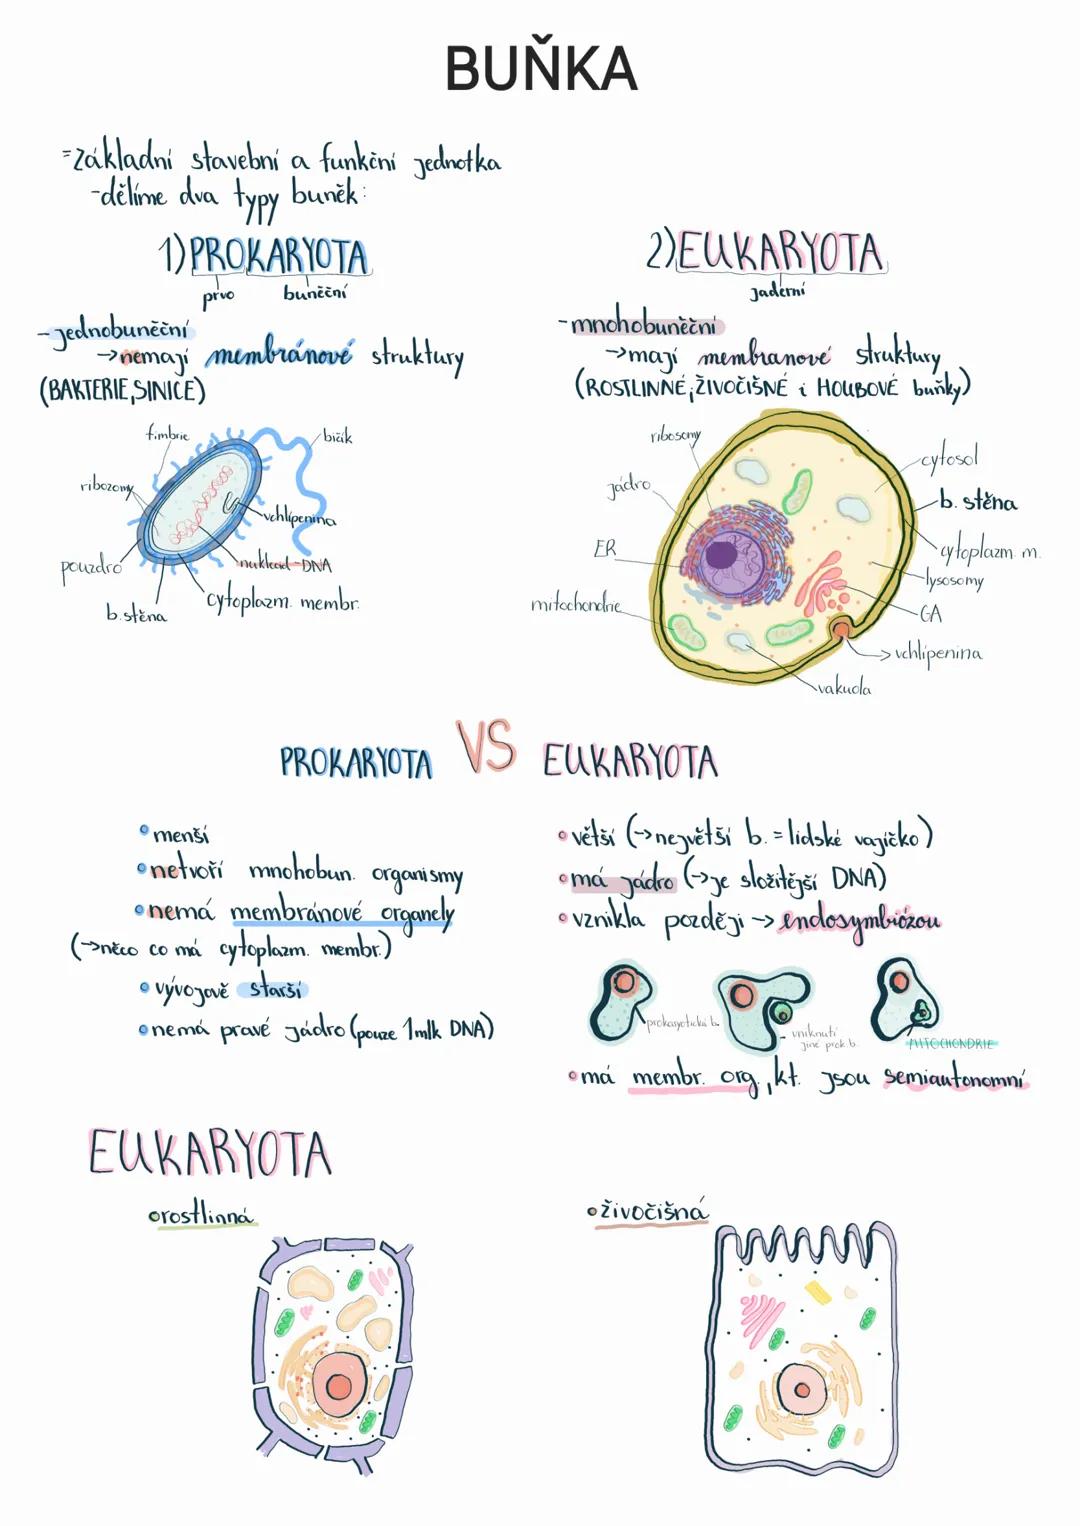 BUŇKA
=základní stavební a funkční jednotka
-dělíme dva typy buněk:
1)PROKARYOTA
prvo buněční
-jednobuněční
→nemají membránové struktury
(BAKTERIE,SINICE)
fimbrie
bičík
ribozomy
vchlípenina
pouzdro
nukleoid-DNA
b.stěna
cytoplazm. membr.
2)EUKARYOTA
jaderní
-mnohobuněční
→mají membranové struktury
(ROSTLINNÉ,ŽIVOČIŠNÉ i HOUBOVÉ buňky)
ribosomy
cytosol
jádro
b. stěna
ER
cytoplazm. m.
lysosomy
mitochondrie
GA
→vchlípenina
vakuola
PROKARYOTA VS EUKARYOTA
menší
netvoří mnohobun. organismy
nemá membránové organely
(→něco co má cytoplazm. membr.)
vývojově starší
nemá pravé jádro (pouze 1mlk DNA)
větší (→největší b. = lidské vajíčko)
má jádro (→je složitější DNA)
vznikla později → endosymbiózou
prokaryotická b.
vniknutí
jiné prok.b.
MITOCHONDRIE
má membr. org., kt. jsou semiautonomní
EUKARYOTA
rostlinná
živočišná